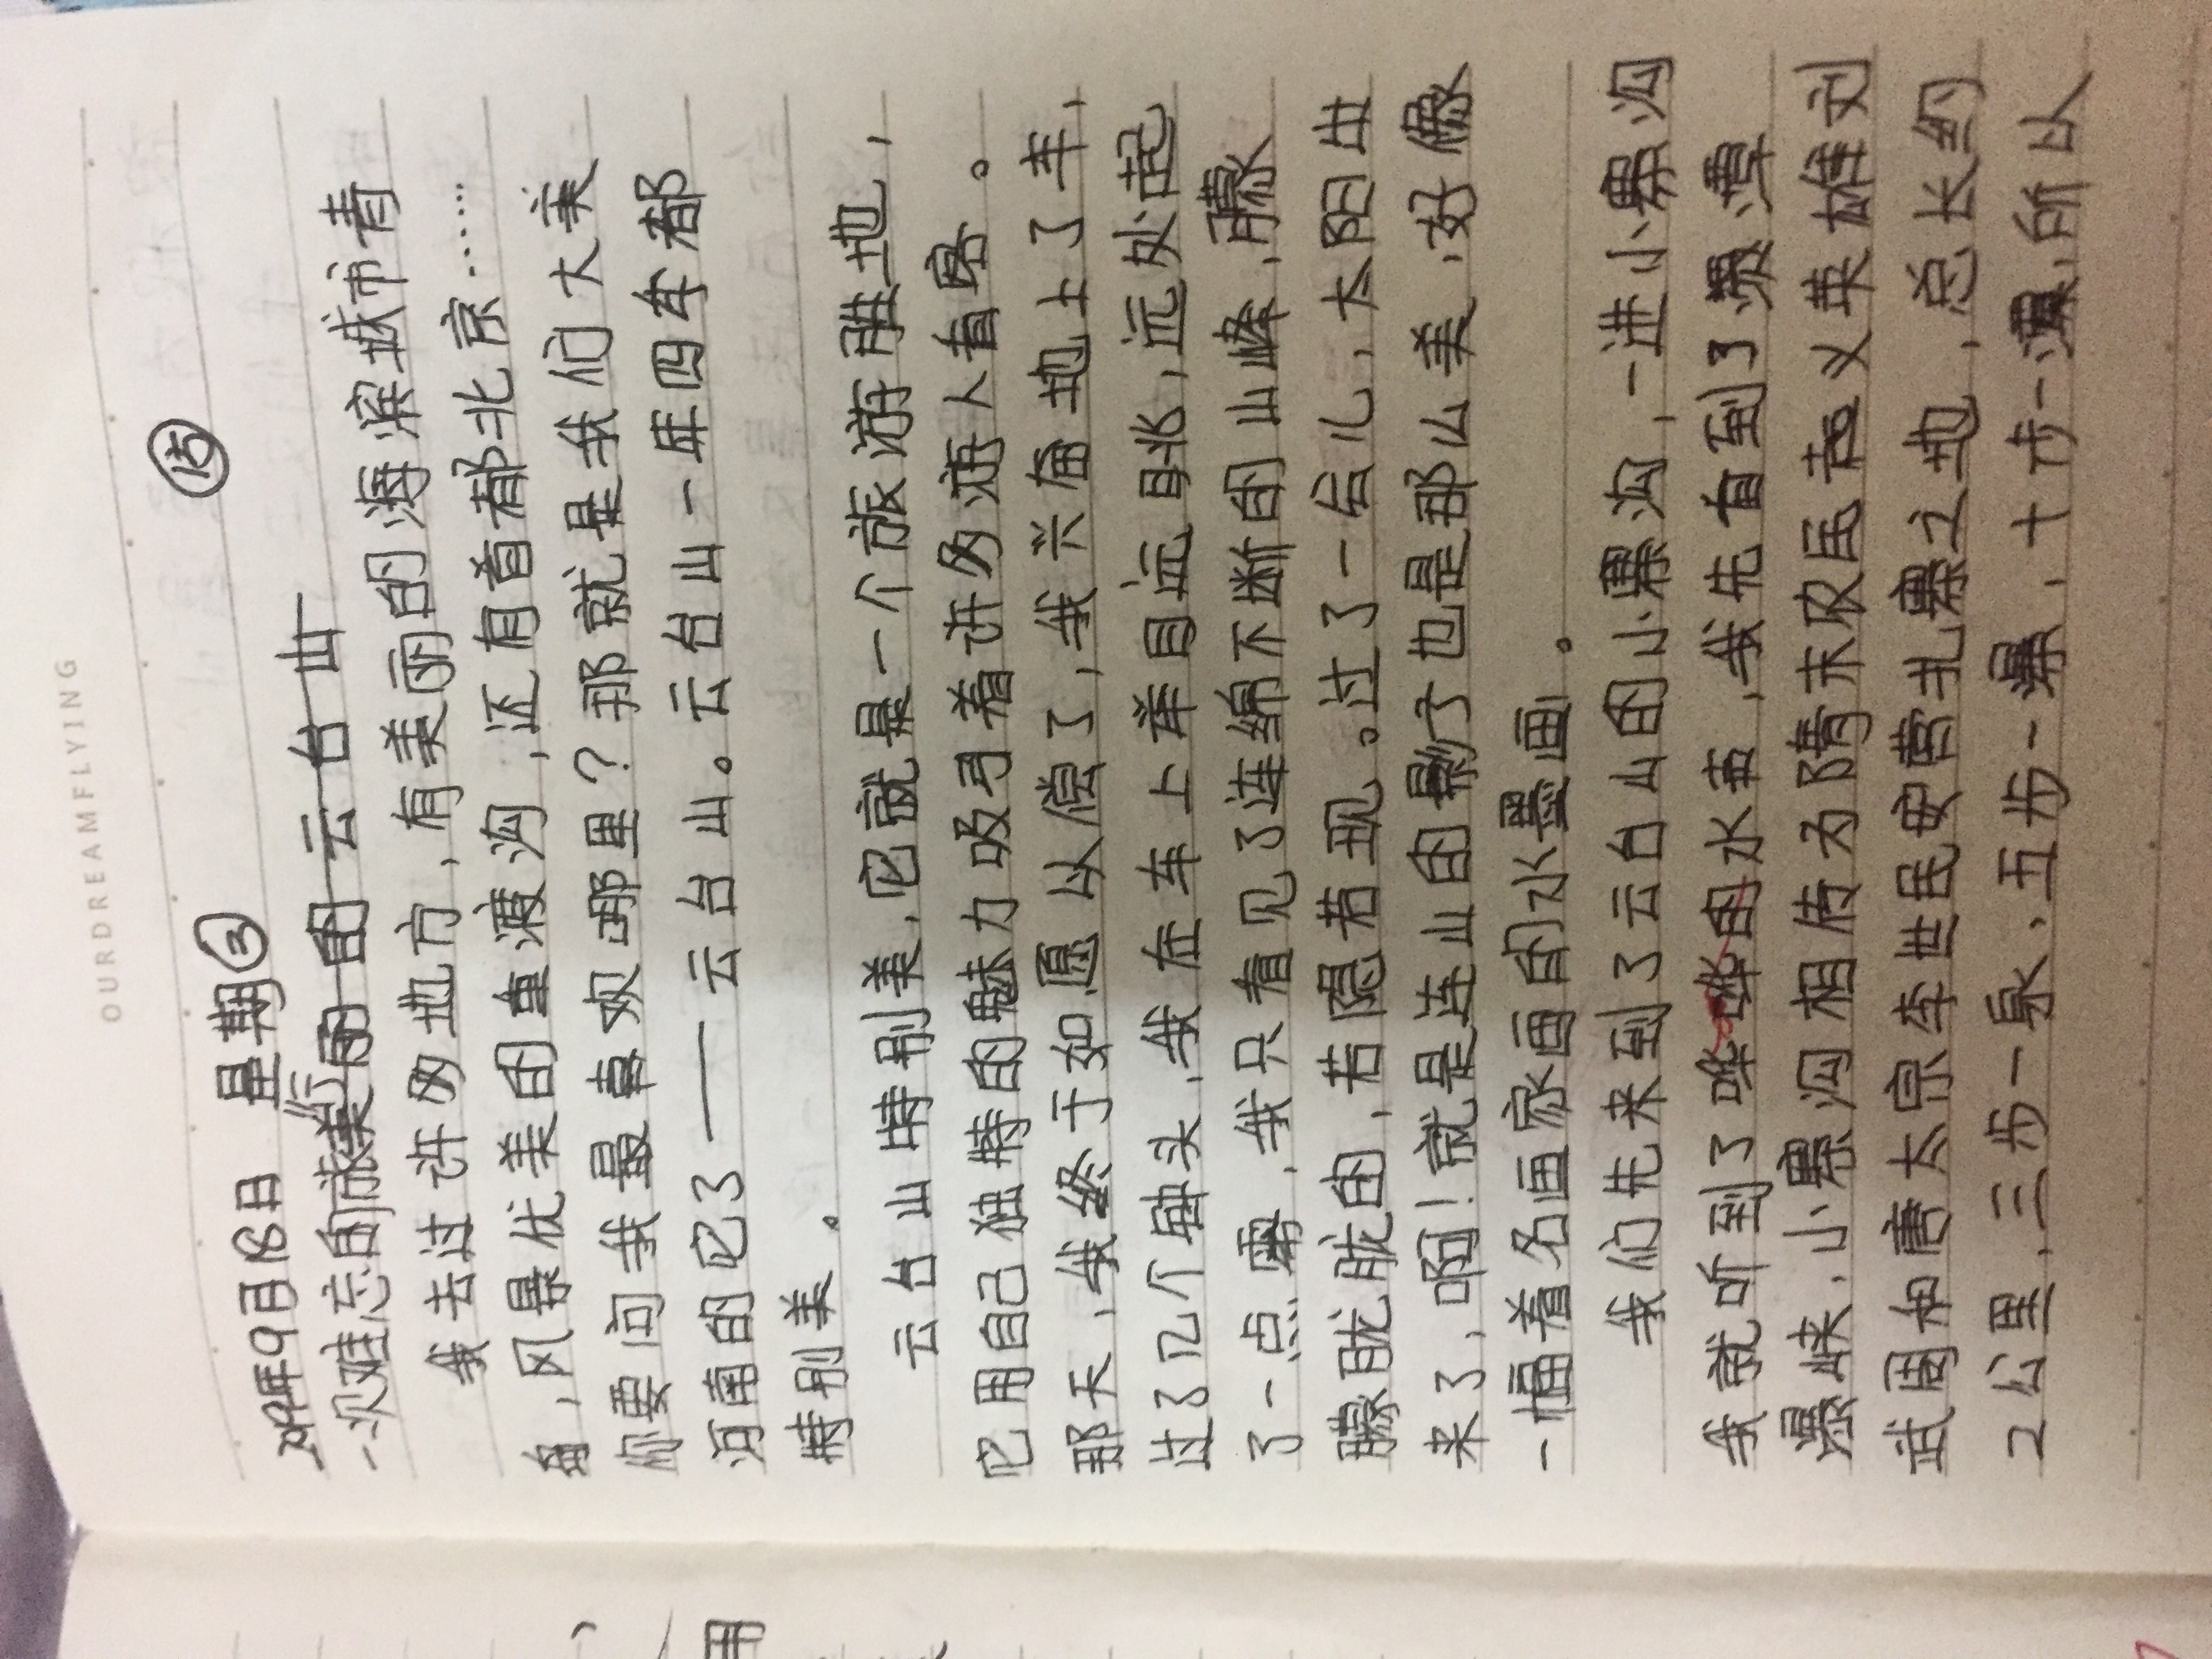 OURDREAMFLYING
⑮
2019年9月18日 星期③
一次难忘的旅行
美丽的云台山
我去过许多地方，有美丽的海滨城市青
岛，风景优美的重渡沟，还有首都北京……
你要问我最喜欢哪里？那就是我们大美
河南的它了——云台山。云台山一年四年都
特别美。
云台山特别美，它就是一个旅游胜地，
它用自己独特的魅力吸引着许多游人着客。
那天，我终于如愿以偿了，我兴奋地上了车，
过了几个弹头，我在车上举目远眺，远处起
了一点雾，我只看见了连绵不断的山峰，朦
朦胧胧的，若隐若现。过了一会儿，太阳出
来了，啊！就是连山的影子也是那么美，好像
一幅着名画家画的水墨画。
我们先来到了云台山的小寨沟，一进小寨沟
我就听到了哗哗的水声，我先看到了瀑潭
瀑峡，小寨沟相传为隋末农民起义英雄刘
武周和唐太宗李世民安营扎寨之地，总长约
2公里，三步一泉，五步一瀑，十步一潭，所以
用